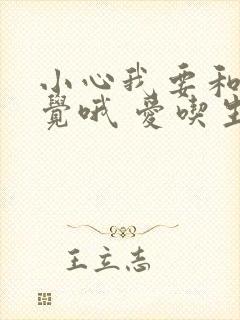 小心我要和
覺哦 愛喫生
王立志